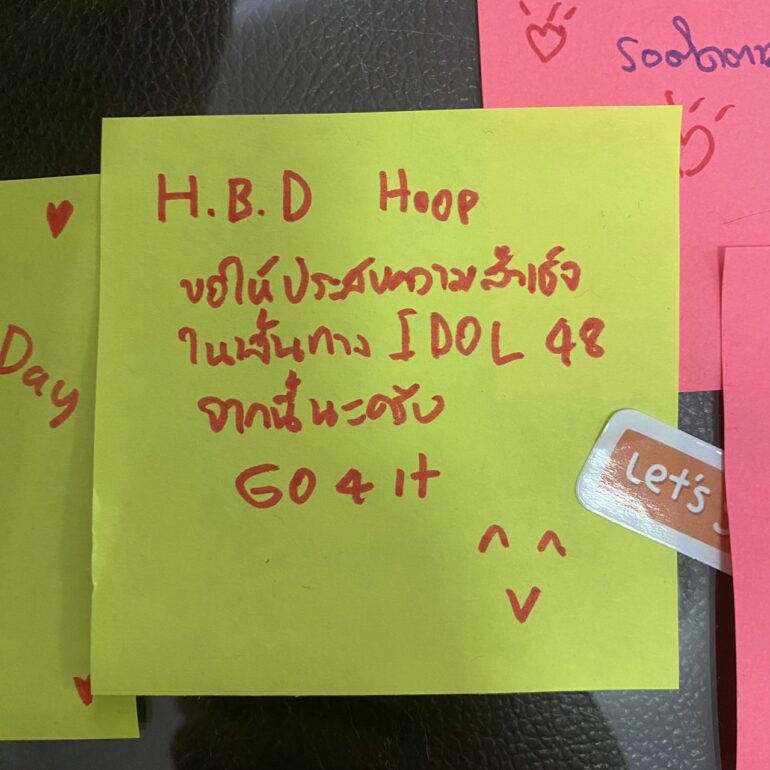 H.B.D Hoop
ขอให้ประสบความสำเร็จ
ในเส้นทาง IDOL 48
จากนี้นะครับ
GO 4 It
Day
Let's